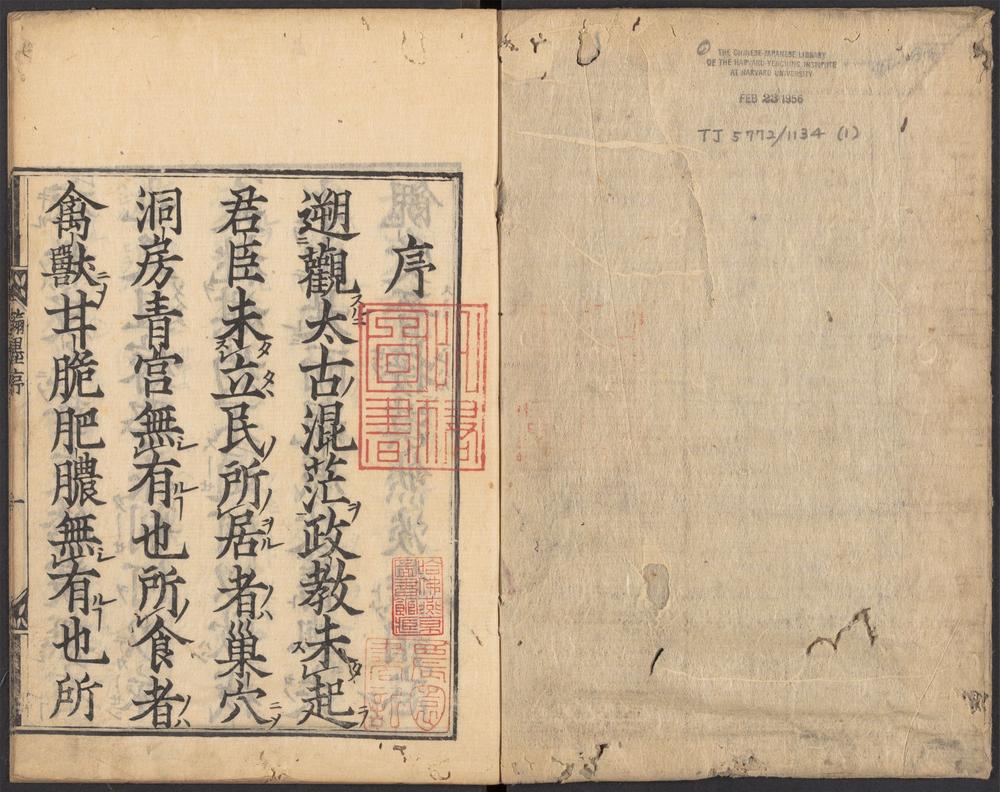 THE CHINESE-JAPANESE LIBRARY
OF THE HARVARD-YENCHING INSTITUTE
AT HARVARD UNIVERSITY
FEB 23 1956
TJ 5772/1134 (1)
序
遡觀太古混茫政教未起
君臣未立民所居者巢穴
洞房青宮無有也所食者
禽獸甘脆肥膿無有也所
序
哈佛燕京
圖書館藏